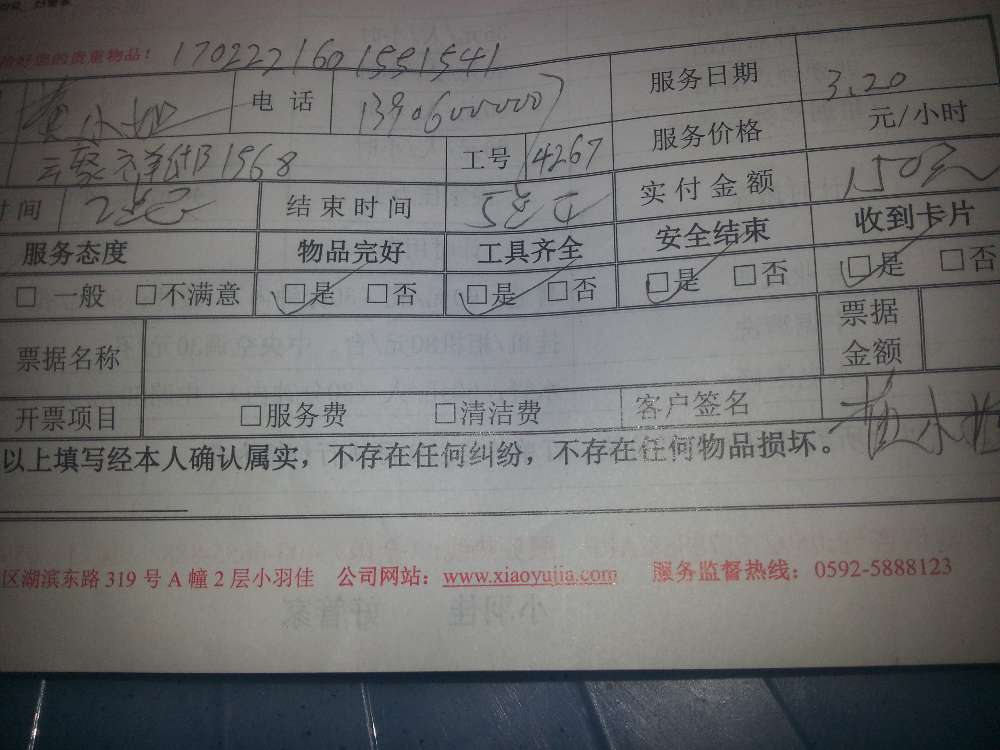 好您的贵重物品! 1702221601551541
黄小姐 电话 13906000007 服务日期 3.20
1568 工号 4267 服务价格 元/小时
时间 2点 结束时间 5点 实付金额 150元
服务态度 物品完好 工具齐全 安全结束 收到卡片
□ 一般 □不满意 □是 □否 □是 □否 □是 □否 □是 □否
票据名称 票据金额
开票项目 □服务费 □清洁费 客户签名 黄小姐
以上填写经本人确认属实，不存在任何纠纷，不存在任何物品损坏。
区湖滨东路 319 号 A 幢 2 层小羽佳 公司网站：www.xiaoyujia.com 服务监督热线：0592-5888123